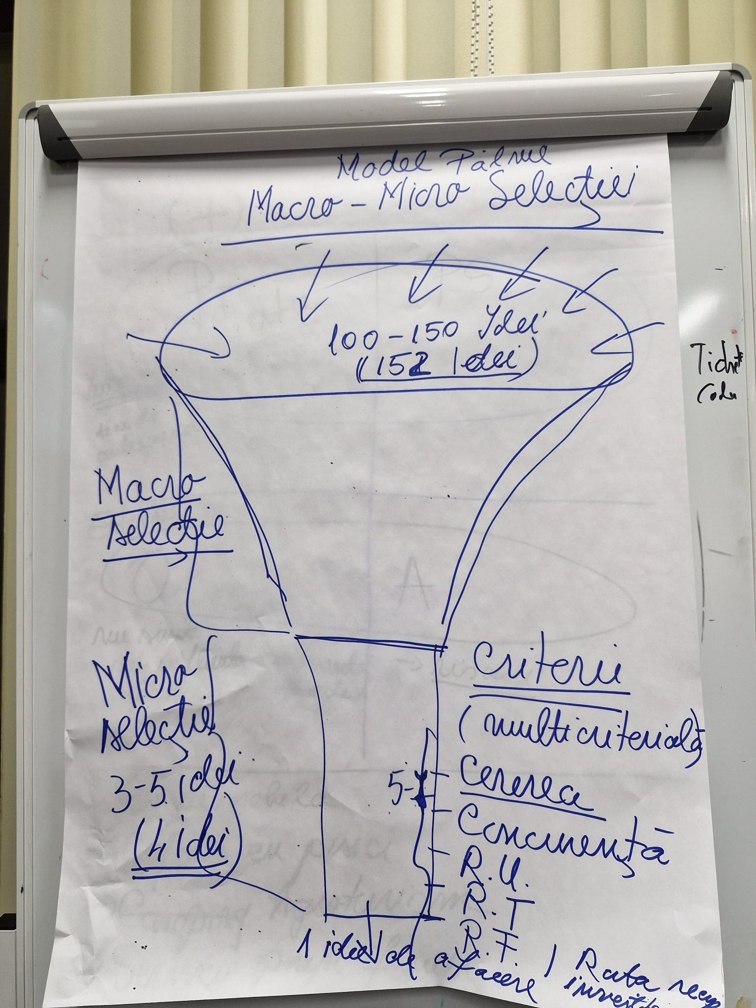 Model Pâlnie
Macro - Micro Selecției
100-150 Idei
(152 Idei)
Macro
selecție
Micro
selecție
3-5 idei
(4 idei)
Criterii
(multicriterială)
5-1
Cererea
Concurență
R.U.
R.T
R.F
1 idee de afacere
Rata